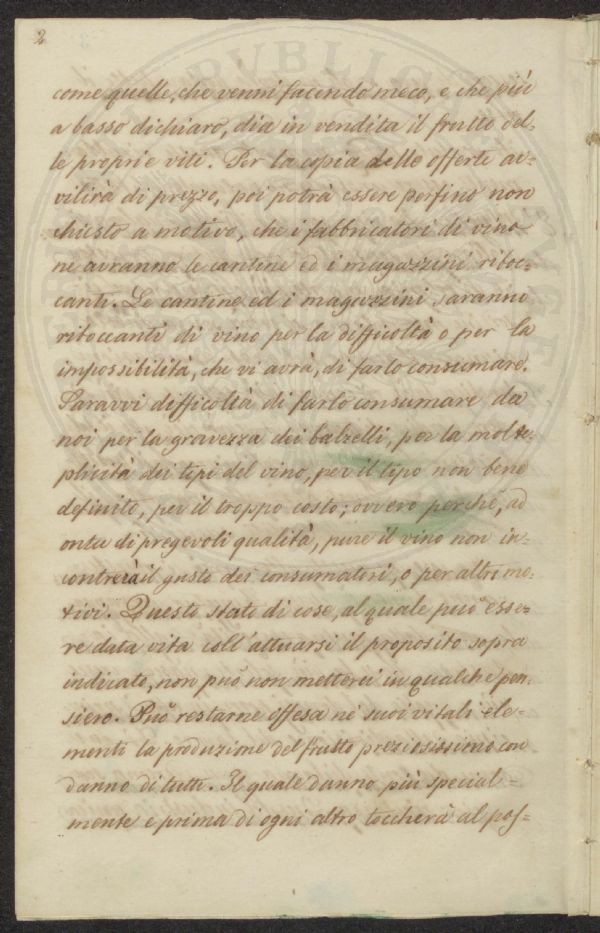 2
come quelle, che venni facendo meco, e che più
a basso dichiaro, dia in vendita il frutto del-
le proprie viti. Per la copia delle offerte av-
vilirà di prezzo, poi potrà essere perfino non
chiesto a motivo, che i fabbricatori di vino
ne avranno le cantine ed i magazzini riboc-
canti. Le cantine ed i magazzini saranno
riboccanti di vino per la difficoltà o per la
impossibilità, che vi avrà, di farlo consumare.
Saravvi difficoltà di farlo consumare da
noi per la gravezza dei balzelli, per la molte-
plicità dei tipi del vino, per il tipo non bene
definito, per il troppo costo; ovvero perché, ad
onta di pregevoli qualità, pure il vino non in-
contrerà il gusto dei consumatori, o per altri mo-
tivi. Questo stato di cose, al quale può esse-
re data vita coll'attuarsi il proposito sopra
indicato, non può non metterci in qualche pen-
siero. Può restarne offesa ne' suoi vitali ele-
menti la produzione del frutto preziosissimo con
danno di tutti. Il quale danno più special-
mente e prima di ogni altro toccherà al pos-